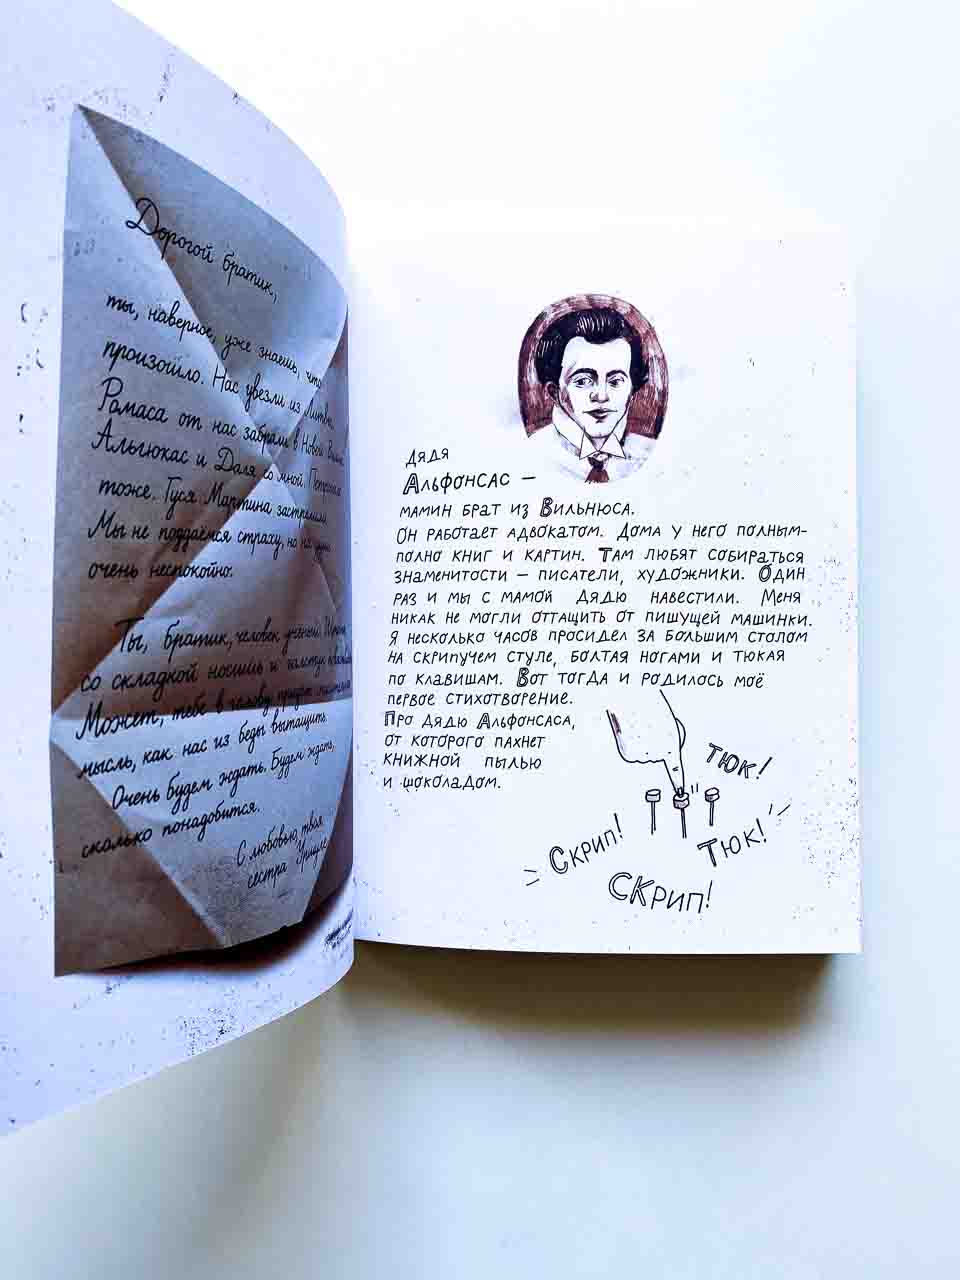 Дорогой братик,
ты, наверное, уже знаешь, что
произошло. Нас увезли из Литвы.
Ромаса от нас забрали в Новой
Альгюкас и Даля со мной.
тоже. Гуся Мартина застрелили.
Мы не поддаёмся страху, но на душе
очень неспокойно.
Ты, братик, человек учёный.
со складкой носишь и галстук
Может, тебе в голову придёт
мысль, как нас из беды вытащить.
Очень будем ждать. Будем ждать,
сколько понадобится.
С любовью, твоя
сестра Уршуле
дядя
Альфонсас –
мамин брат из Вильнюса.
Он работает адвокатом. Дома у него полным-
полно книг и картин. Там любят собираться
знаменитости – писатели, художники. Один
раз и мы с мамой дядю навестили. Меня
никак не могли оттащить от пишущей машинки.
Я несколько часов просидел за большим столом
на скрипучем стуле, болтая ногами и тюкая
по клавишам. Вот тогда и родилось моё
первое стихотворение.
Про дядю Альфонсаса,
от которого пахнет
книжной пылью
и шоколадом.
Тюк!
Тюк!
Скрип!
Скрип!